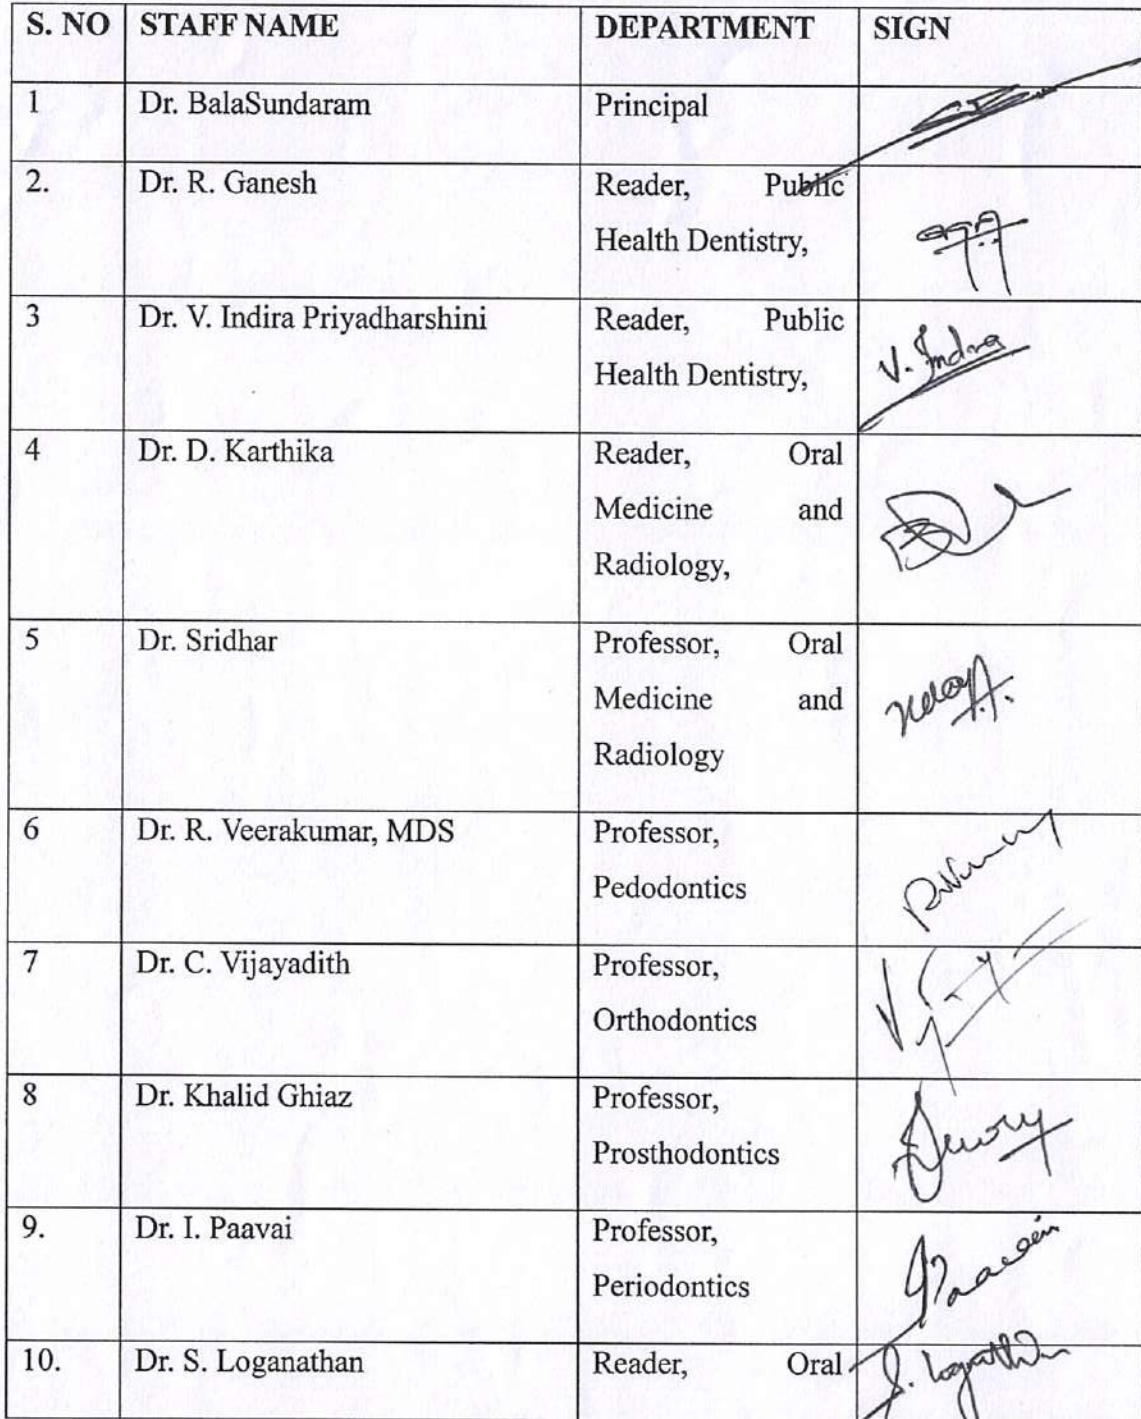 S. NO STAFF NAME DEPARTMENT SIGN
1 Dr. BalaSundaram Principal
2. Dr. R. Ganesh Reader, Public
Health Dentistry,
3 Dr. V. Indira Priyadharshini Reader, Public
Health Dentistry,
V. Indira
4 Dr. D. Karthika Reader, Oral
Medicine and
Radiology,
5 Dr. Sridhar Professor, Oral
Medicine and
Radiology
6 Dr. R. Veerakumar, MDS Professor,
Pedodontics
7 Dr. C. Vijayadith Professor,
Orthodontics
8 Dr. Khalid Ghiaz Professor,
Prosthodontics
9. Dr. I. Paavai Professor,
Periodontics
10. Dr. S. Loganathan Reader, Oral